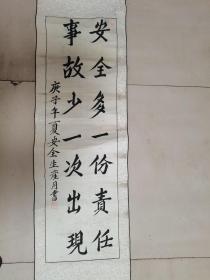 安全多一份責任
事故少一次出現
庚子年夏安全生產月書